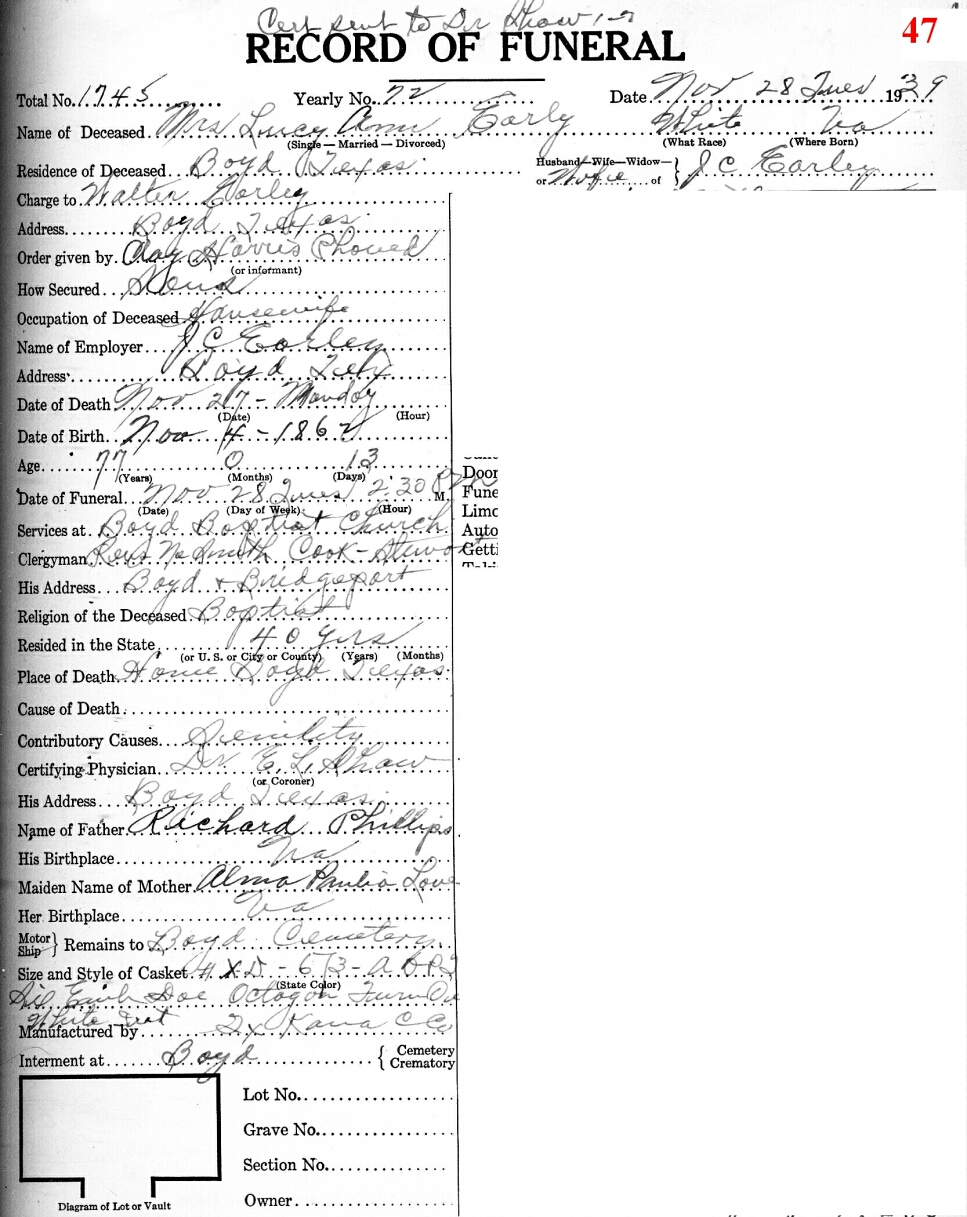 Cert sent to Dr Shaw
47
RECORD OF FUNERAL
Total No. 1745 Yearly No. 72 Date Nov 28 Tues 1939
Name of Deceased Mrs Lucy Ann Early White Va
(Single — Married — Divorced) (What Race) (Where Born)
Residence of Deceased Boyd Texas Husband—Wife—Widow— or Wife of } J.C Earley
Charge to Walter Earley
Address Boyd Texas
Order given by Clay Harris Phoned
(or informant)
How Secured
Occupation of Deceased Housewife
Name of Employer J C Earley
Address Boyd Tex
Date of Death Nov 27 - Monday
(Date) (Hour)
Date of Birth Nov 4 - 1862
Age 77 0 13
(Years) (Months) (Days)
Door
Date of Funeral Nov 28 Tues 2:30 P M.
Fune
(Date) (Day of Week) (Hour)
Limo
Services at Boyd Baptist Church
Auto
Clergyman Revs Cook - Stewart
Getti
His Address Boyd & Bridgeport
Religion of the Deceased Baptist
Resided in the State 40 yrs
(or U. S. or City or County) (Years) (Months)
Place of Death Home Boyd Texas
Cause of Death
Contributory Causes Senility
Certifying Physician Dr. E. L. Shaw
(or Coroner)
His Address Boyd Texas
Name of Father Richard Phillips
His Birthplace Va
Maiden Name of Mother Alma Love
Her Birthplace Va
Motor Ship } Remains to Boyd Cemetery
Size and Style of Casket 4 X D - 6/3 -
(State Color)
Sil Emb Doe Octagon
White
Manufactured by
Interment at Boyd { Cemetery Crematory
Lot No.
Grave No.
Section No.
Owner
Diagram of Lot or Vault